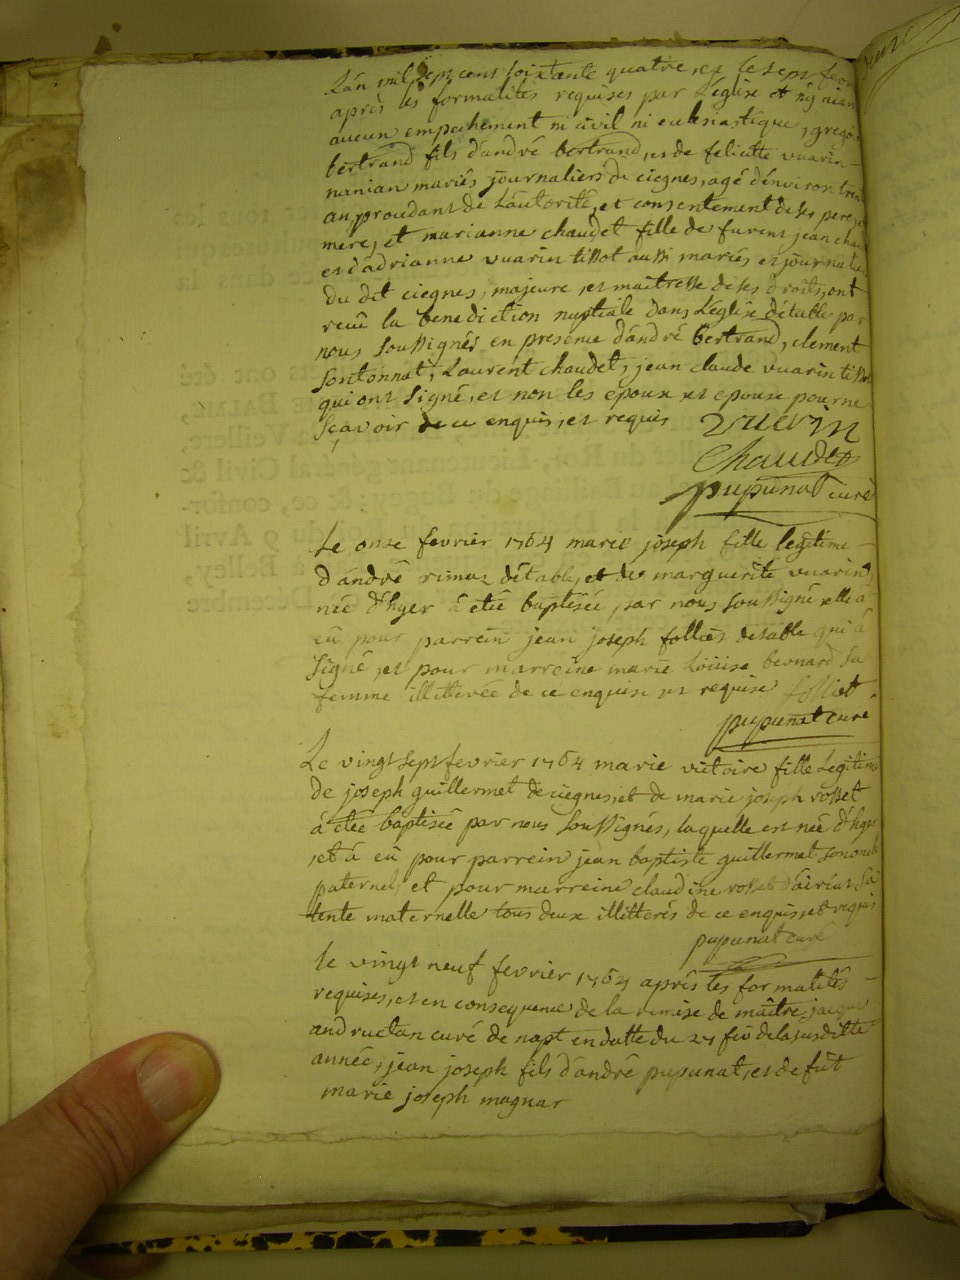 L'an mil sept cens soixtante quatre, et le sept fevr
après les formalités requises par L'église et n'y aian
aucun empechement ni civil ni eclesiastique, gregoi
bertrand fils d'andré bertrand, et de felicitte vuarin
nanian mariés journaliers de ciegnes, agé d'environ tren
an, procedant de L'autorité, et consentement de ses pere, et
mere, et marianne chaudet fille de jean chau
et d'adrianne vuarin tissot aussi mariés et journalie
du dit ciegnes, majeure, et maitresse de ses droits, ont
recu la benediction nuptiale dans L'église d'étable par
nous soussignés en presence d'andré bertrand, clement
sontonnat, Laurent chaudet, jean claude vuarin tissot
qui ont signé, et non les epoux et epouse pour ne
sçavoir de ce enquis, et requis vuarin
chaudet
pupunat curé
Le onze fevrier 1764 marie joseph fille legitime
d'andré rimaz d'étable, et de marguerite vuarin
née d'hyer à etée baptisée par nous soussigné elle a
eû pour parrein jean joseph folliet d'etable qui a
signé, et pour marreine marie Louise beonard sa
femme illitterée de ce enquise et requise folliet
pupunat curé
Le vingt sept fevrier 1764 marie victoire fille Legitime
de joseph guillermet de ciegnes, et de marie joseph rosset
à etée baptisée par nous soussignés, laquelle est née d'hyer
et à eû pour parrein jean baptiste guillermet son oncle
paternel et pour marreine claudine rosset sa
tente maternelle tous deux illitterés de ce enquis, et requis
pupunat curé
le vingt neuf fevrier 1764 après les formalités
requises, et en consequence de la remise de maître jacque
andructan curé de napt en datte du 27 fev de la susditte
année, jean joseph fils d'andré pupunat, et de fût
marie joseph magnar